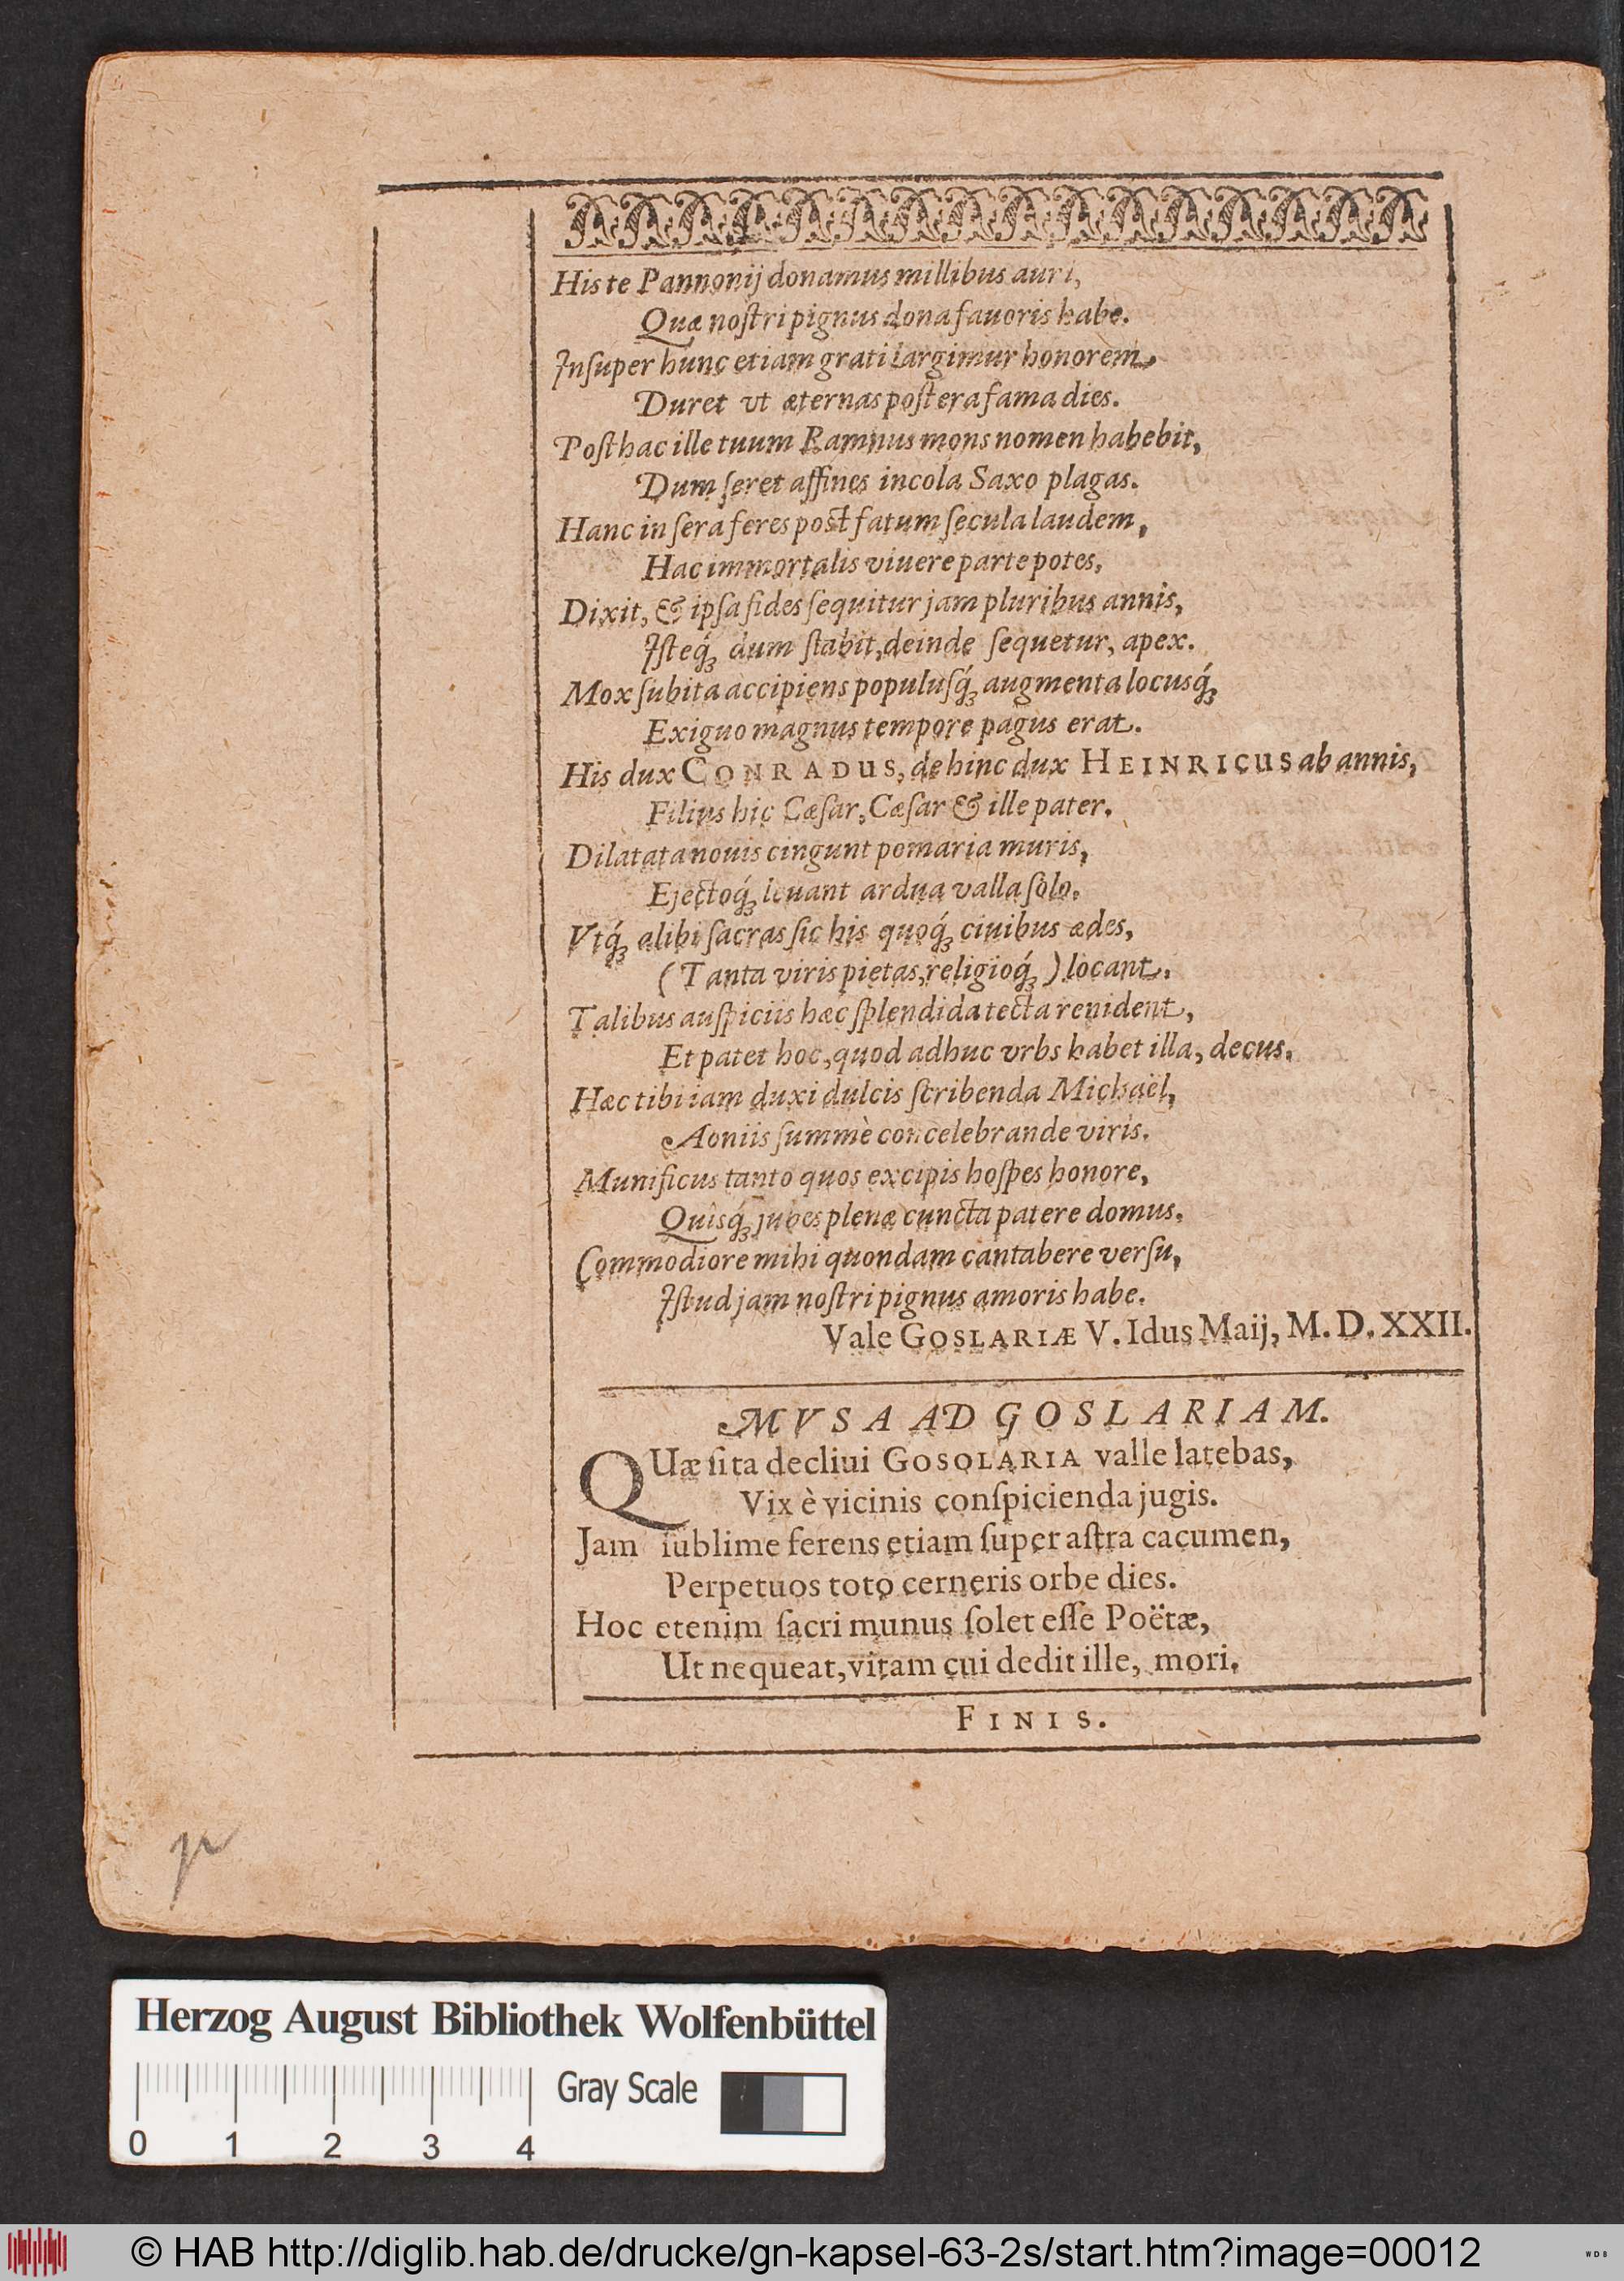 His te Pannonij donamus millibus auri,
Quæ noſtri pignus dona fauoris habe.
Inſuper hunc etiam grati largimur honorem,
Duret vt æternas poſtera fama dies.
Poſthac ille tuum Ramnus mons nomen habebit,
Dum ſeret affines incola Saxo plagas.
Hanc in ſera feres poſt fatum ſecula laudem,
Hac immortalis viuere parte potes,
Dixit, & ipſa fides ſequitur jam pluribus annis,
Iſteq́ꝫ dum ſtabit, deinde ſequetur, apex.
Mox ſubita accipiens populuſq́ꝫ augmenta locusq́ꝫ
Exiguo magnus tempore pagus erat.
His dux CONRADUS, dehinc dux HEINRICUS ab annis,
Filius hic Cæſar, Cæſar & ille pater.
Dilatata nouis cingunt pomaria muris,
Ejectoq́ꝫ leuant ardua valla ſolo.
Vtq́ꝫ alibi ſacras ſic his quoq́ꝫ ciuibus ædes,
(Tanta viris pietas, religioq́ꝫ) locant.
Talibus auſpiciis hæc ſplendida tecta renident,
Et patet hoc, quod adhuc vrbs habet illa, decus.
Hæc tibi iam duxi dulcis ſcribenda Michaël,
Aoniis ſummè concelebrande viris.
Munificus tanto quos excipis hoſpes honore,
Quîsq́ꝫ jubes plenæ cuncta patere domus.
Commodiore mihi quondam cantabere verſu,
Iſtud jam noſtri pignus amoris habe.
Vale GOSLARIÆ V. Idus Maij, M. D. XXII.
MVSA AD GOSLARIAM.
QUæſita decliui GOSOLARIA valle latebas,
Vix è vicinis conſpicienda jugis.
Jam ſublime ferens etiam ſuper aſtra cacumen,
Perpetuos toto cerneris orbe dies.
Hoc etenim ſacri munus ſolet eſſe Poëtæ,
Ut nequeat, vitam cui dedit ille, mori.
FINIS.
Herzog August Bibliothek Wolfenbüttel
Gray Scale
0 1 2 3 4
© HAB http://diglib.hab.de/drucke/gn-kapsel-63-2s/start.htm?image=00012
WDB